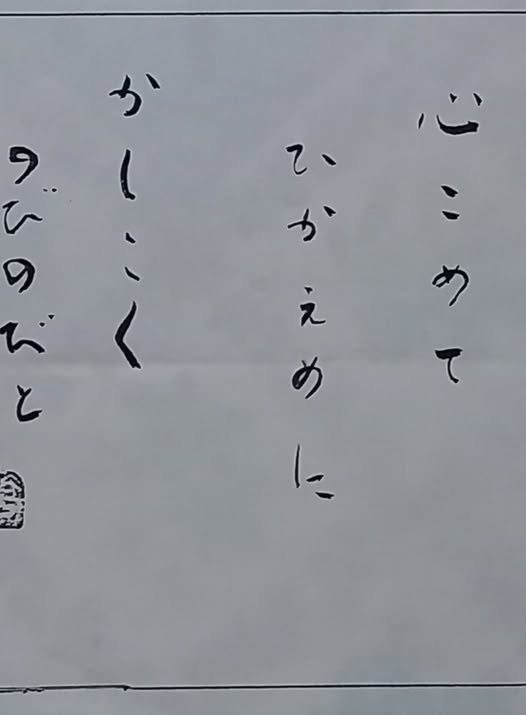 心こめて
ひかえめに
かしこく
のびのびと